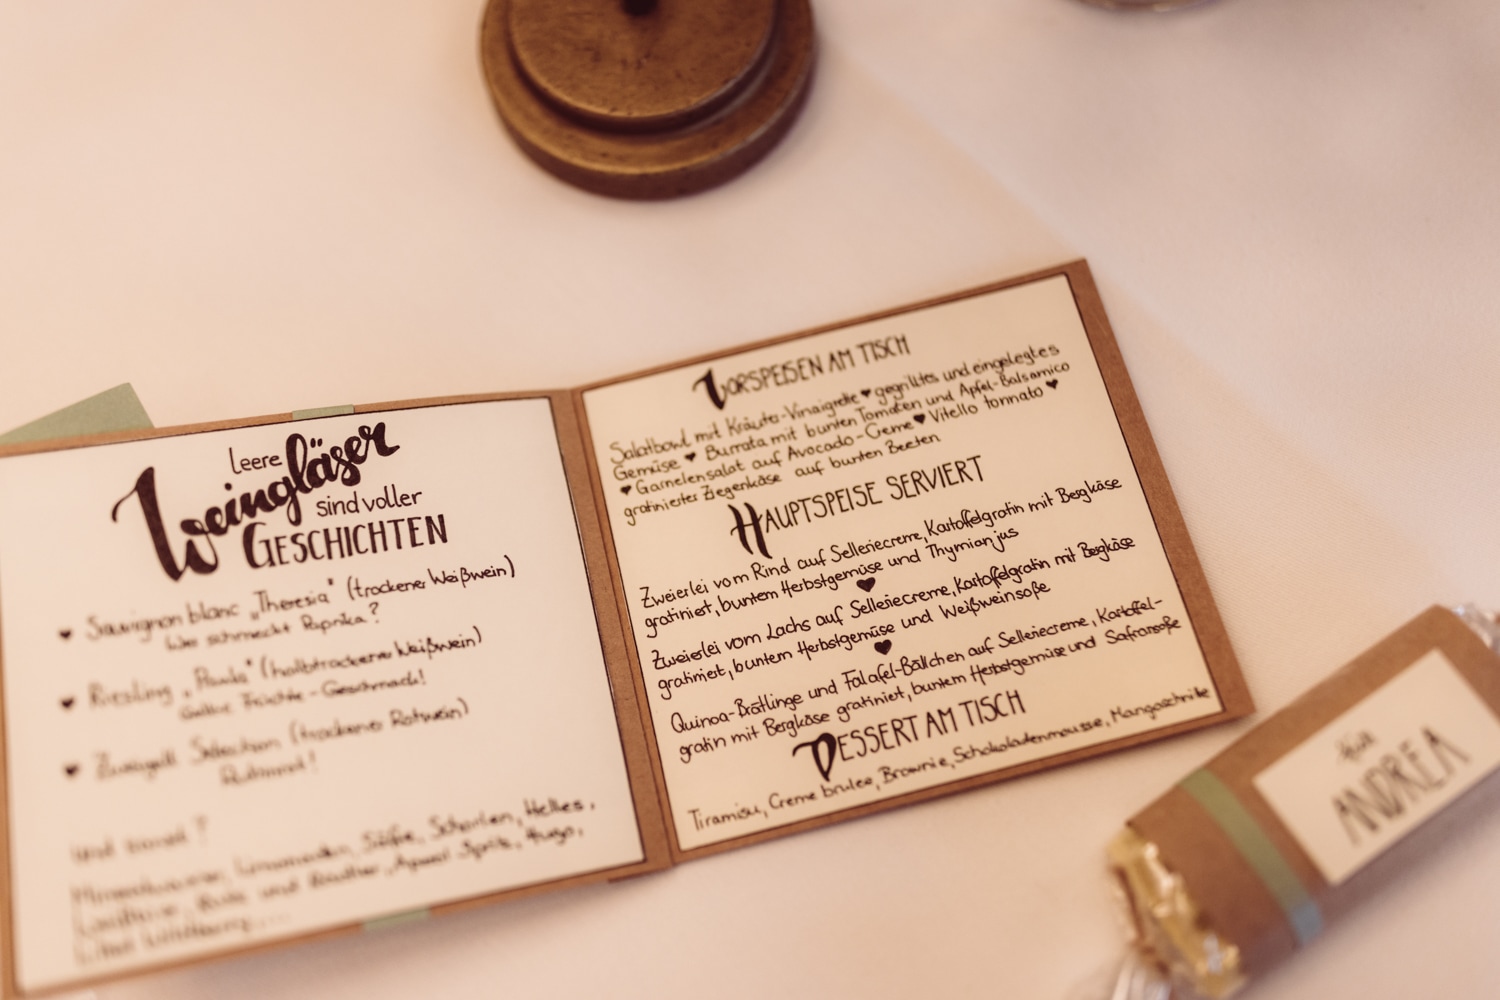 leere
Weingläser
sind voller
GESCHICHTEN
Sauvignon blanc „Theresia" (trockener Weißwein)
Wer schmeckt Paprika?
Riesling „Paula" (halbtrockener Weißwein)
Gelbe Früchte-Geschmack!
Zweigelt Selection (trockener Rotwein)
Und sonst?
Mineralwasser, Limonaden, Säfte, Schorlen, Helles,
und Aperol Spritz, Hugo,
VORSPEISEN AM TISCH
Salatbowl mit Kräuter-Vinaigrette ♥ gegrilltes und eingelegtes
Gemüse ♥ Burrata mit bunten Tomaten und Apfel-Balsamico
♥ Garnelensalat auf Avocado-Creme ♥ Vitello tonnato ♥
gratinierter Ziegenkäse auf bunten Beeten
HAUPTSPEISE SERVIERT
Zweierlei vom Rind auf Selleriecreme, Kartoffelgratin mit Bergkäse
gratiniert, buntem Herbstgemüse und Thymianjus
♥
Zweierlei vom Lachs auf Selleriecreme, Kartoffelgratin mit Bergkäse
gratiniert, buntem Herbstgemüse und Weißweinsoße
♥
Quinoa-Brätlinge und Falafel-Bällchen auf Selleriecreme, Kartoffel-
gratin mit Bergkäse gratiniert, buntem Herbstgemüse und Safransoße
DESSERT AM TISCH
Tiramisu, Creme brulee, Brownie, Schokoladenmousse, Mangoschnitte
für
ANDREA